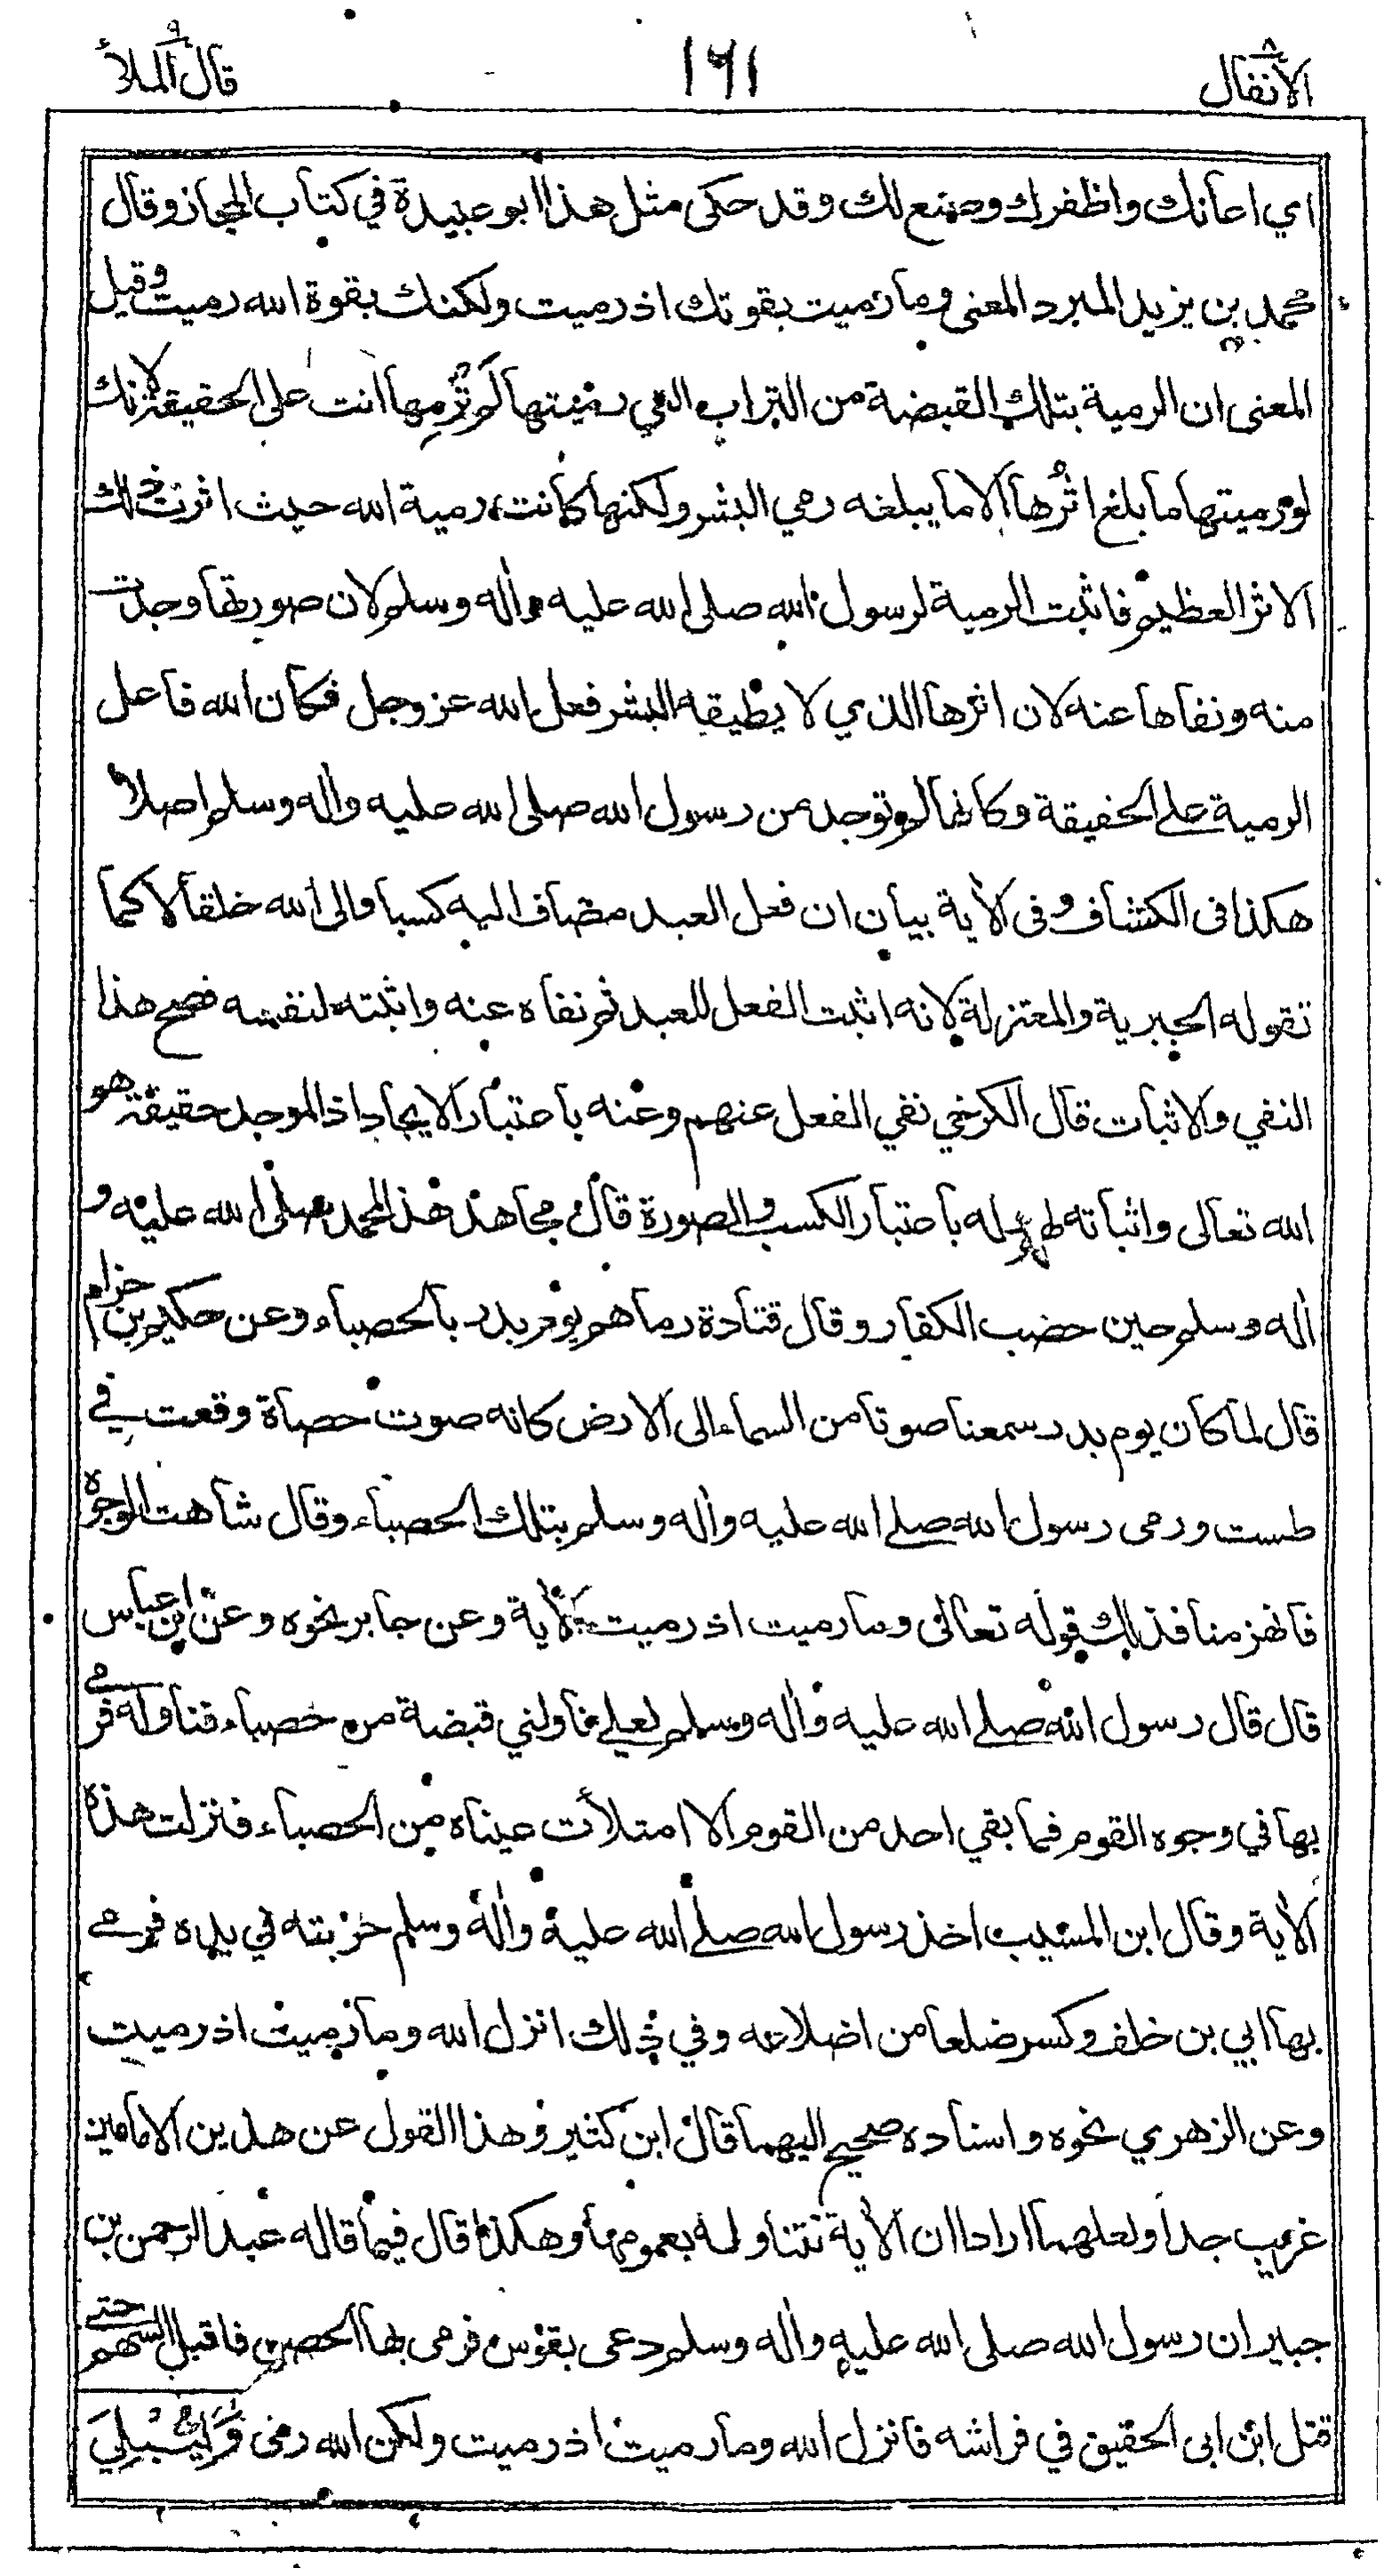 الأنفال ٨
١٦١
قال الملأ ٩
اي اعانك واظفرك وصنع لك وقد حكى مثل هذا ابو عبيدة في كتاب المجاز وقال
محمد بن يزيد المبرد المعنى وما رميت بقوتك اذ رميت ولكنك بقوة الله رميت وقيل
المعنى ان الرمية بتلك القبضة من التراب التي رميتها لم ترمها انت على الحقيقة لانك
لو رميتها ما بلغ اثرها الا ما يبلغه رمي البشر ولكنها كانت رمية الله حيث اثرت ذلك
الاثر العظيم فاثبت الرمية لرسول الله صلى الله عليه واٰله وسلم لان صورتها وجدت
منه ونفاها عنه لان اثرها الذي لا يطيقه البشر فعل الله عز وجل فكان الله فاعل
الرمية على الحقيقة وكانها لم توجد من رسول الله صلى الله عليه واٰله وسلم اصلا
هكذا في الكشاف وفى الاٰية بيان ان فعل العبد مضاف اليه كسبا والى الله خلقا لا كما
تقوله الجبرية والمعتزلة لانه اثبت الفعل للعبد ثم نفاه عنه واثبته لنفسه فصح هذا
النفي والاثبات قال الكرخي نفي الفعل عنهم وعنه باعتبار الايجاد اذ الموجد حقيقة هو
الله تعالى واثباته لهم وله باعتبار الكسب والصورة قال مجاهد هذا لمحمد صلى الله عليه و
اٰله وسلم حين حصب الكفار وقال قتادة رماهم يوم بدر بالحصباء وعن حكيم بن حزام
قال لما كان يوم بدر سمعنا صوتا من السماء الى الارض كانه صوت حصاة وقعت في
طست ورمى رسول الله صلى الله عليه واٰله وسلم بتلك الحصباء وقال شاهت الوجوه
فانهزمنا فذلك قوله تعالى وما رميت اذ رميت الاٰية وعن جابر نحوه وعن ابن عباس
قال قال رسول الله صلى الله عليه واٰله وسلم لعلي ناولني قبضة من حصباء فناوله فرمى
بها في وجوه القوم فما بقي احد من القوم الا امتلأت عيناه من الحصباء فنزلت هذه
الاٰية وقال ابن المسيب اخذ رسول الله صلى الله عليه واٰله وسلم حربته في يده فرمى
بها ابي بن خلف وكسر ضلعا من اضلاعه وفي ذلك انزل الله وما رميت اذ رميت
وعن الزهري نحوه واسناده صحيح اليهما قال ابن كثير وهذا القول عن هذين الامامين
غريب جدا ولعلهما ارادا ان الاٰية تتناوله بعمومها وهكذا قال فيما قاله عبد الرحمن بن
جبير ان رسول الله صلى الله عليه واٰله وسلم دعى بقوس فرمى بها الحصن فاقبل السهم حتى
قتل ابن ابى الحقيق في فراشه فانزل الله وما رميت اذ رميت ولكن الله رمى وَلِيُبْلِيَ